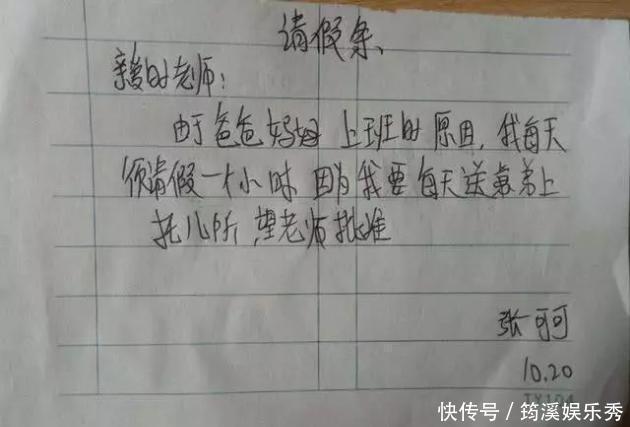 请假条、
亲爱的老师：
由于爸爸妈妈上班的原因，我每天
须请假一个小时因为我要每天送弟弟上
托儿所，望老师批准
张可可
10.20
TX104
快传号／筠溪娱乐秀